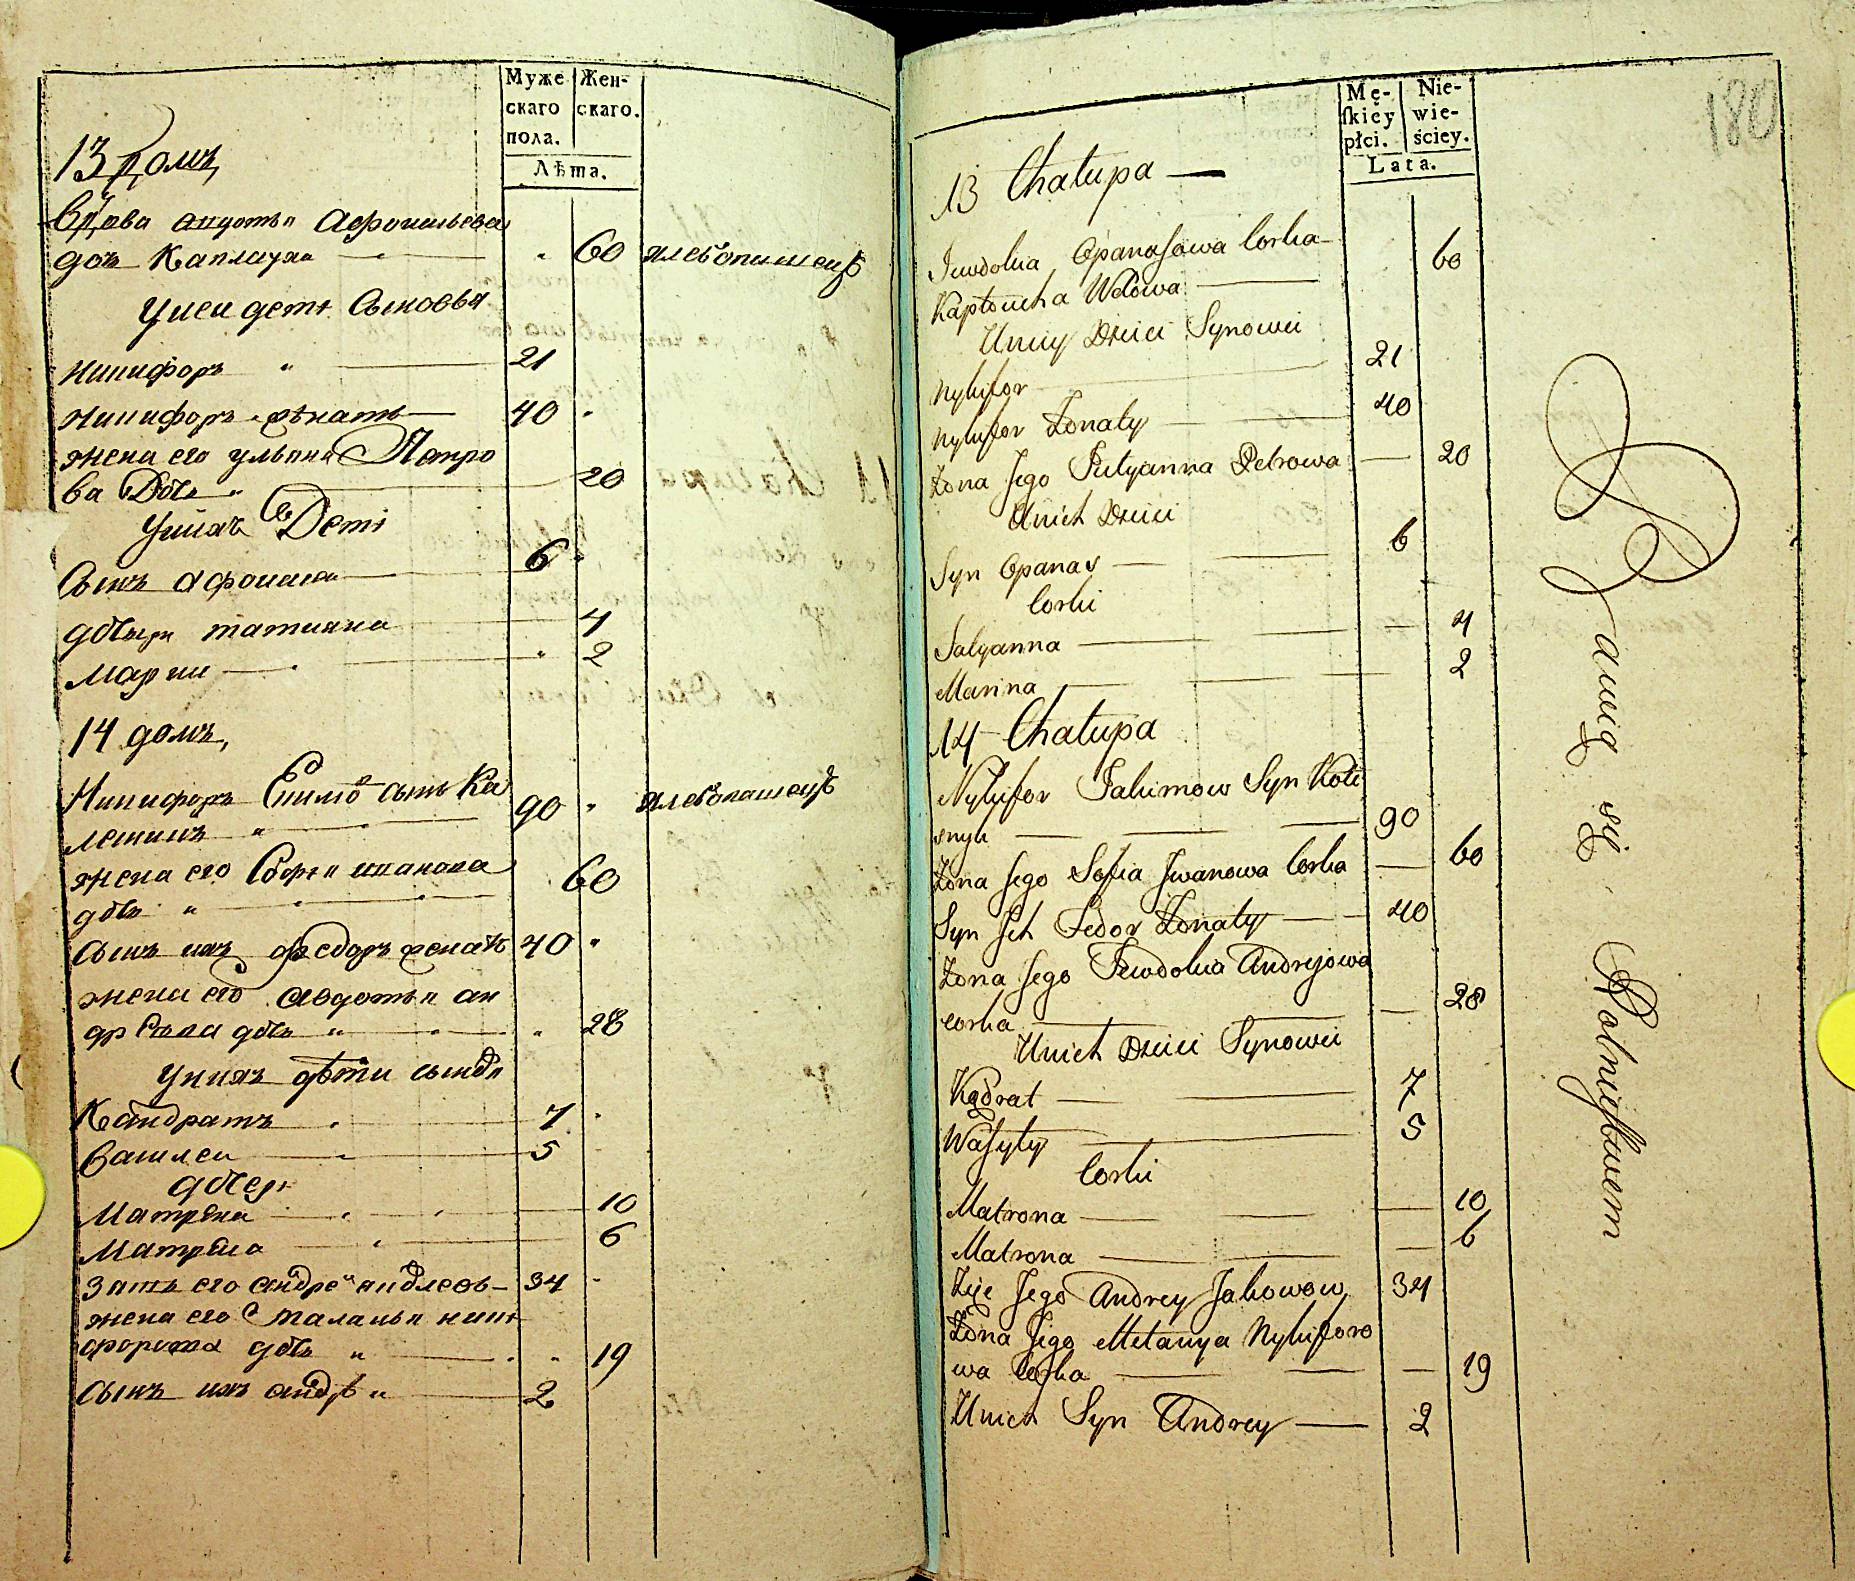 Муже
скаго
пола.
Жен-
скаго.
Лѣта.
13 домъ,
Вдова авдотья афонасьева
дочь 60 хлебопашецъ
дети Сыновья
никифоръ 21
никифоръ женатъ 40
жена его ульяна Петро
ва Дочь 20
Униxъ Дети
Сынъ афонаси 6
дочери татияна 4
марии 2
14 домъ,
Никифоръ Екимов сынъ Ко
90 хлебопашецъ
жена его Софья иванова
дочь 60
сынъ ихъ федоръ женатъ 40
жена его авдотья ан
дрѣева дочь 28
Унихъ дѣти сынове
Кандратъ 7
Василеи 5
дочери
Матрена 10
Матрена 6
Зять его андреи 34
жена его маланья ники
форова дочь 19
сынъ ихъ андрѣи 2
180
Mę-
skiey
płci.
Nie-
wie-
ściey.
Lata.
13 Chałupa
Iewdokia Opanasowa Corka 60
Wdowa
Uniey Dzieci Synowei
Nykifor 21
Nykifor Żonaty 40
Żona Jego Petrowa 20
Unich Dzieci
Syn Opanas 6
Corki
Tatyanna 4
Marina 2
14 Chałupa
Nykifor Jakimow Syn Kole
snyk 90
Żona Jego Sofia Jwanowa Corka 60
Syn Ich Fedor Żonaty 40
Żona Jego Iewdokia Andrejowa
Corka 28
Unich Dzieci Synowei
Kądrat 7
Wasyly 5
Corki
Matrona 10
Matrona 6
Zięć Jego Andrey Jakowow 34
Żona Jego Melanya Nykiforo
wa Corka 19
Unich Syn Andrey 2
Bawią się Rolnictwem